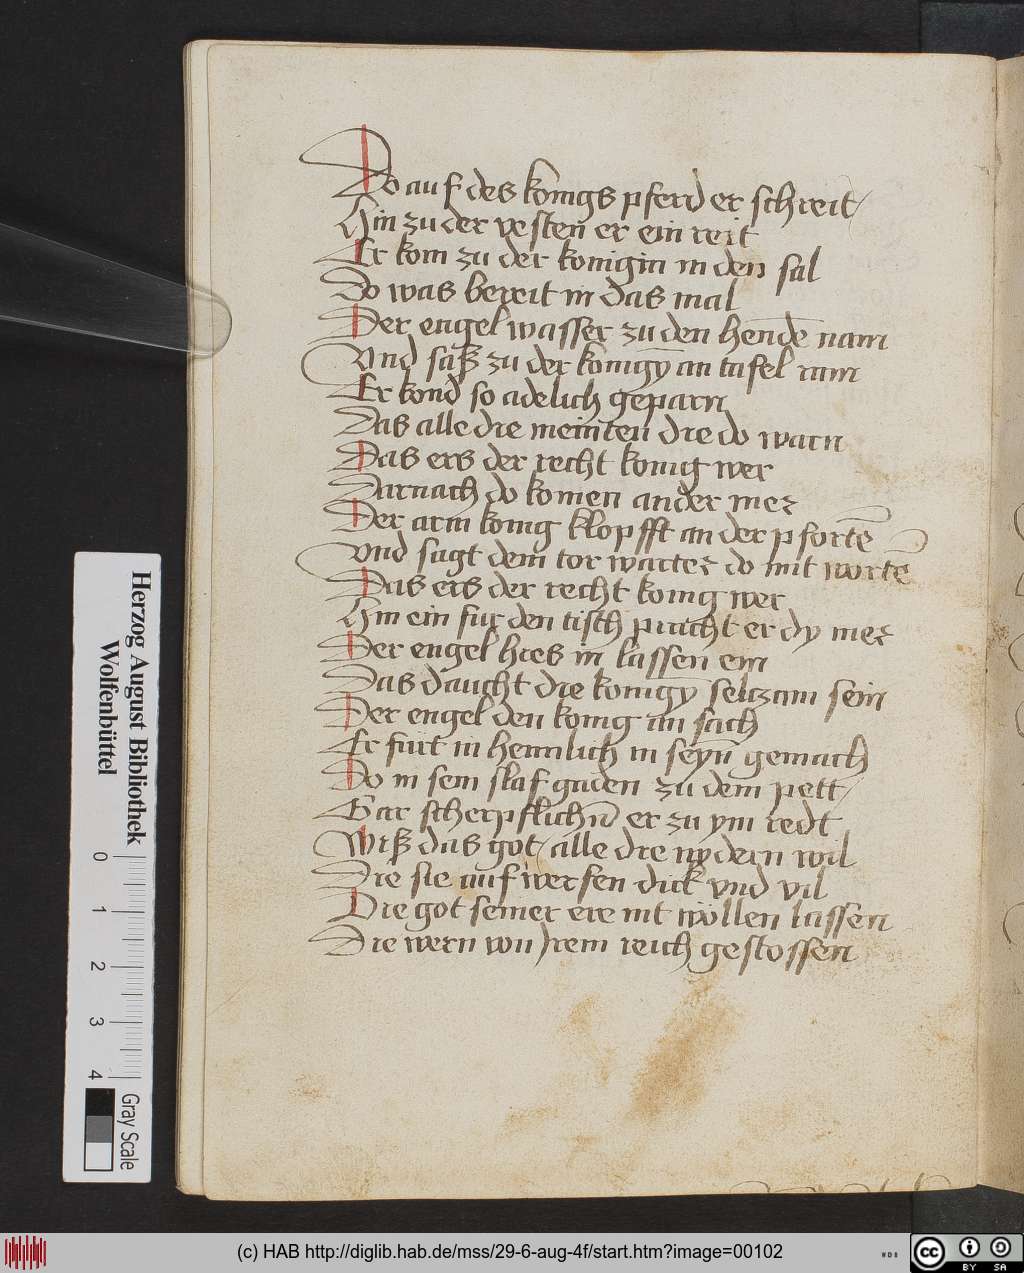 Do auf des konigs pferd er schreit
Hin zu der vesten er ein reit
Er kom zu der konigin in den sal
Do was bereit in das mal
Der engel wasser zu den hende nam
Vnd saß zu der konigȳ an tafel ram
Er kond so adelich geparn
Das alle die meinten die do warn
Das ers der recht konig wer
Darnach do komen ander mer
Der arm konig klopfft an der pfortē
Vnd sagt dem tor warter do mit wortē
Das ers der recht konig wer
Hin ein fur den tisch pracht er dy mer
Der engel hies in lassen ein
Das daucht die konigȳ selczam sein
Der engel den konig an sach
Er furt in heimlich in seyn̄ gemach
Do in sein slaf gaden zu dem pett
Gar scherpflichn̄ er zu ym redt
Wiß das got alle die nydern wil
Die sie auf werfen dick vnd vil
Die got seiner ere nit wöllen lassen
Die wern von irem reich gestossen
Herzog August Bibliothek
Wolfenbüttel
0 1 2 3 4
Gray Scale
(c) HAB http://diglib.hab.de/mss/29-6-aug-4f/start.htm?image=00102
WDB
cc BY SA